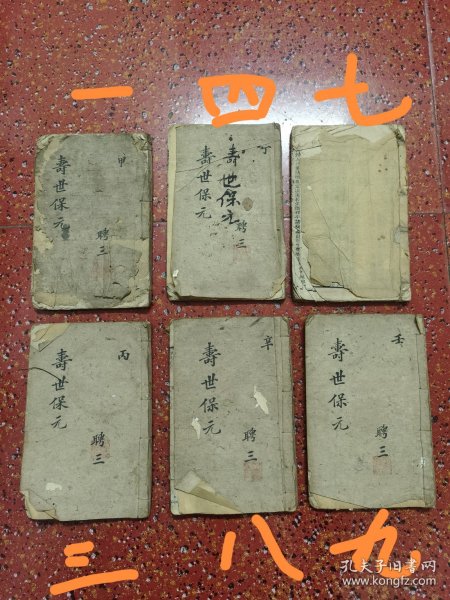 一 四 七
甲
壽世保元
聘三
丁
壽世保元
壽世保元
聘三
丙
壽世保元
聘三
辛
壽世保元
聘三
壬
壽世保元
聘三
三 八 九
孔夫子旧书网
www.kongfz.com